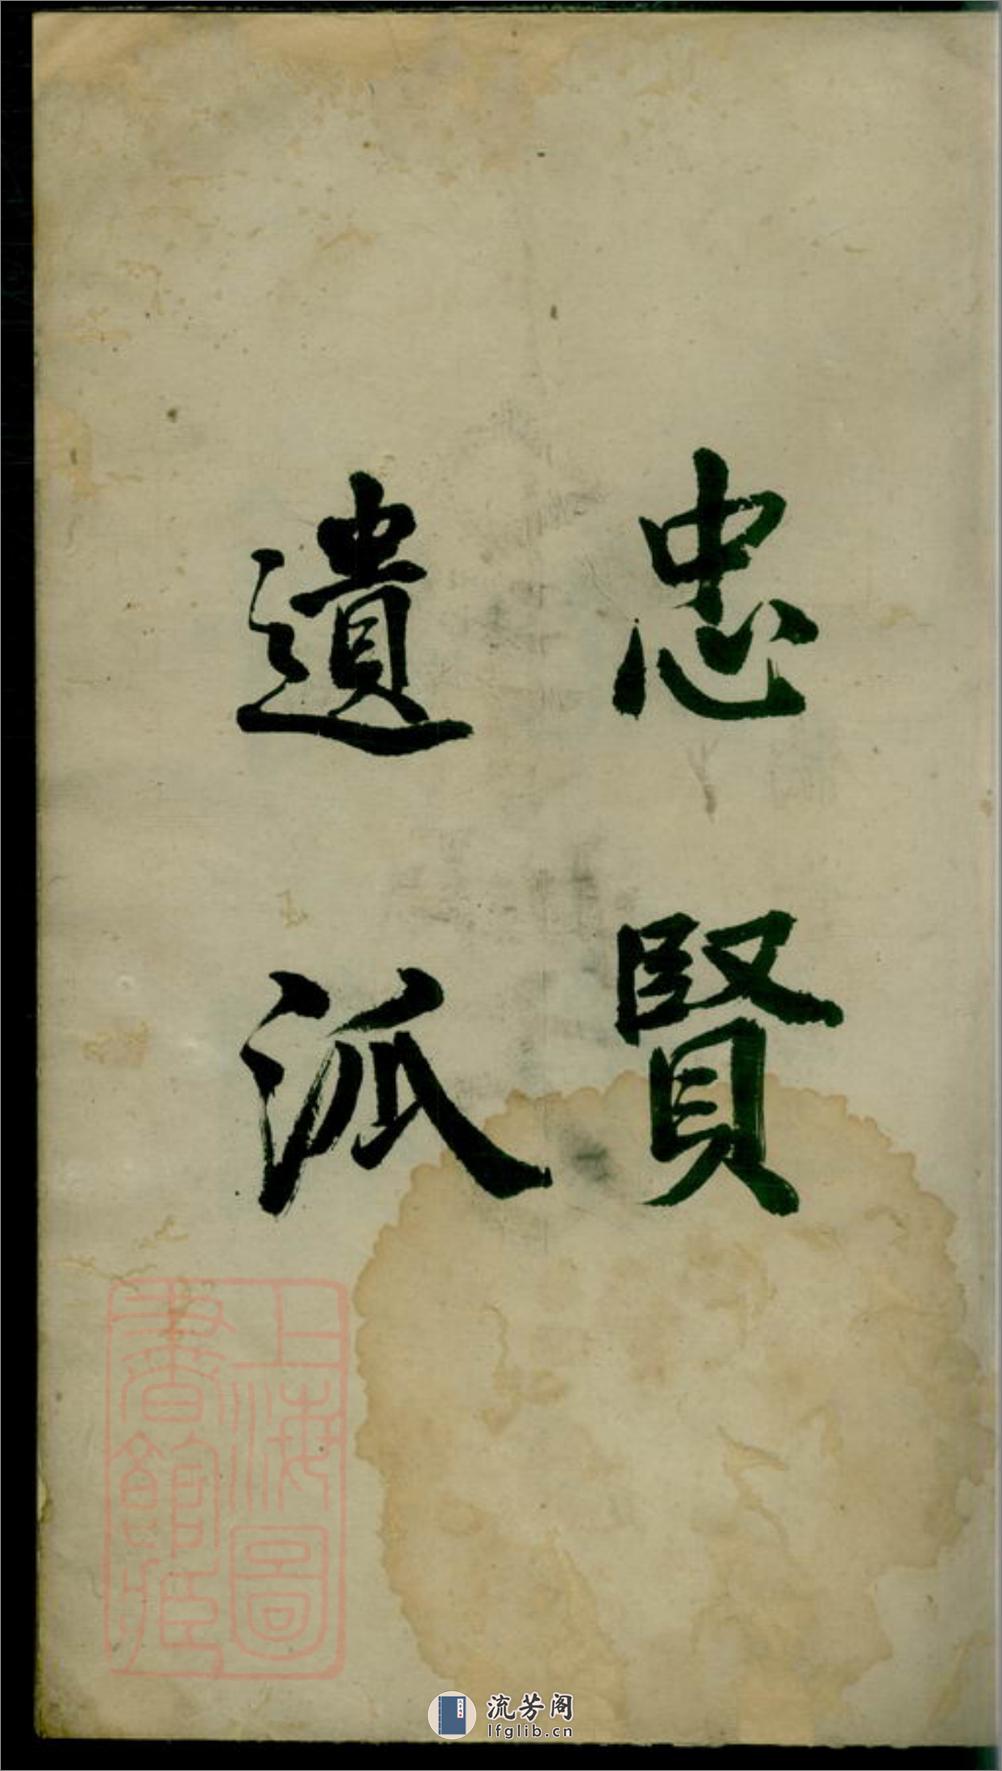 忠賢
遺泒
上海圖
書館藏
流芳阁
lfglib.cn